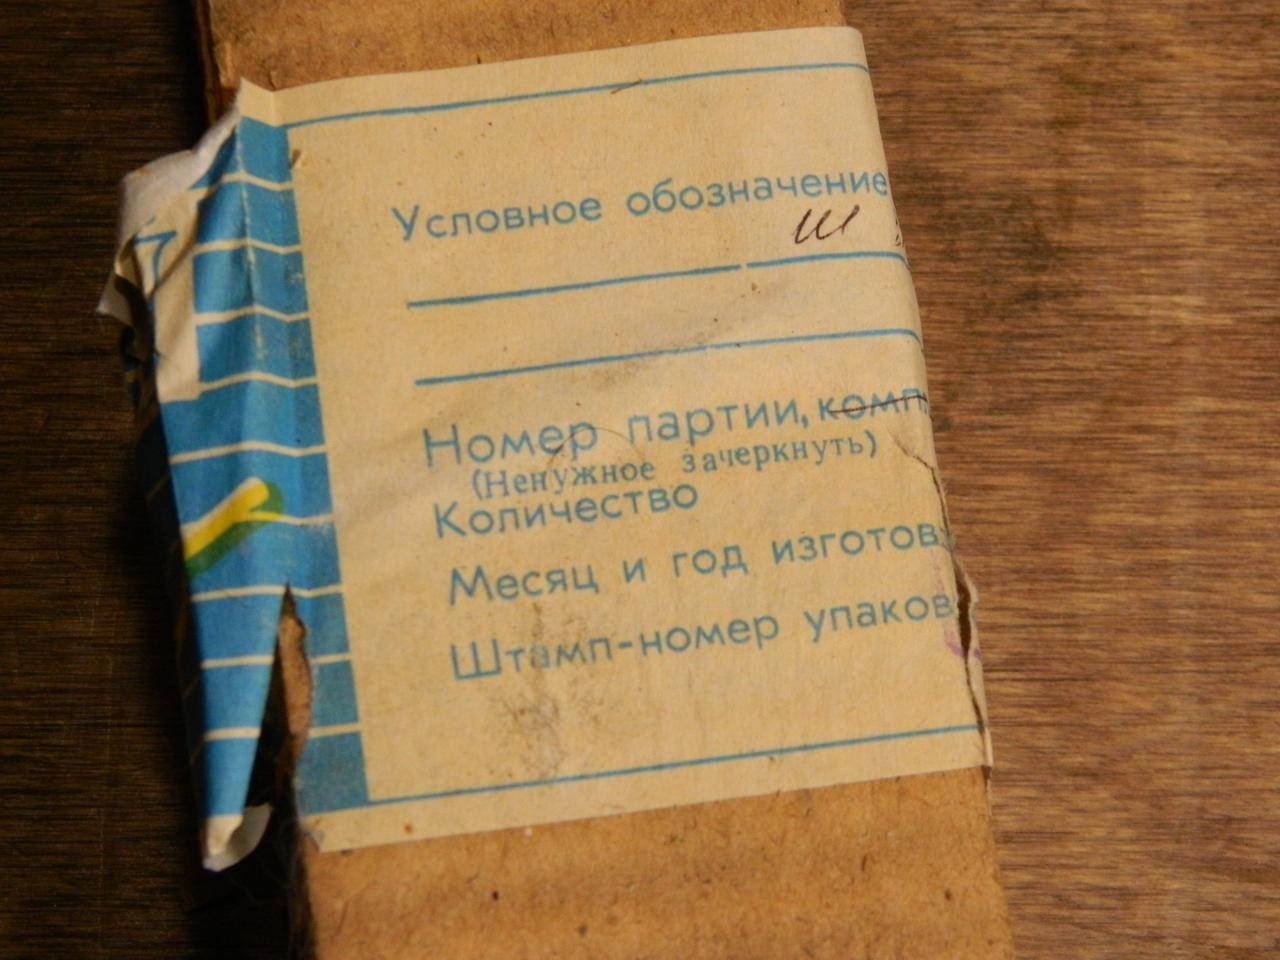 Условное обозначение
Ш
Номер партии, комп
(Ненужное зачеркнуть)
Количество
Месяц и год изготов
Штамп-номер упаков